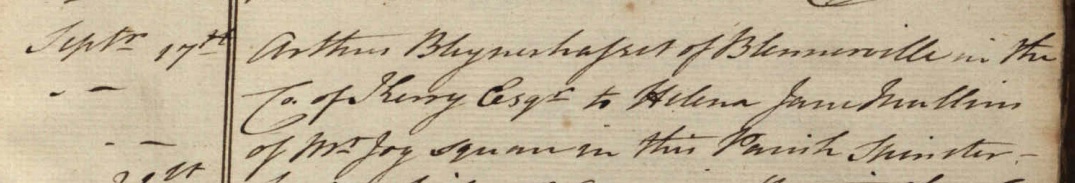 Septr 17th Arthur Blynerhasset of Blennerville in the
Co. of Kerry Esqr to Helena Jane Mullins
of Mt Joy Square in this Parish Spinster -
21st